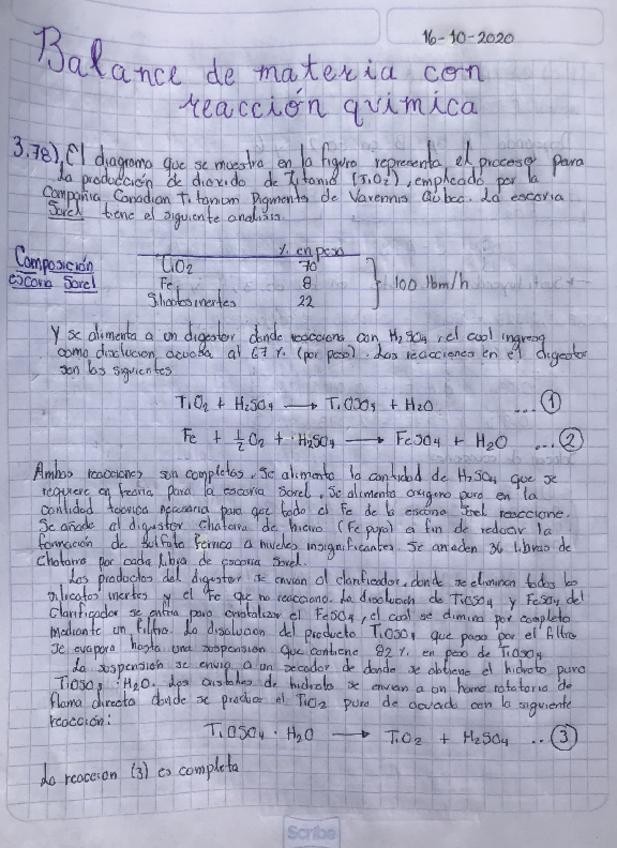 16-10-2020
Balance de materia con
reacción química
3.78) El diagrama que se muestra en la figura representa el proceso para
la producción de dioxido de Titanio (TiO2), empleado por la
Compañia Canadian Titanium Pigments de Varennis Qubec. La escoria
Sorel tiene el siguiente analisis.
% en peso
Composición
escoria Sorel
TiO2 70
Fe 8
Silicatos inertes 22
100 lbm/h
Y se alimenta a un digestor donde reacciona con H2SO4, el cual ingresa
como disolucion acuosa al 67 % (por peso). Las reacciones en el digestor
son los siguientes
TiO2 + H2SO4 → TiOSO4 + H2O ...①
Fe + ½O2 + H2SO4 → FeSO4 + H2O ...②
Ambas reacciones son completas. Se alimenta la cantidad de H2SO4 que se
requiere en teoria para la escoria Sorel. Se alimenta oxigeno puro en la
cantidad teorica necesaria para que todo el Fe de la escoria Sorel reaccione.
Se añade al digestor chatarra de hierro (Fe puro) a fin de reducir la
formación de sulfato ferrico a niveles insignificantes. Se añaden 36 libras de
chatarra por cada libra de escoria Sorel.
Los productos del digestor se envian al clarificador, donde se eliminan todos los
silicatos inertes y el Fe que no reacciono. La disolucion de TiOSO4 y FeSO4 del
clarificador se enfria para cristalizar el FeSO4, el cual se elimina por completo
mediante un filtro. La disolucion del producto TiOSO4 que pasa por el filtro
se evapora hasta una suspension que contiene 82 % en peso de TiOSO4
La suspensión se envia a un secador de donde se obtiene el hidrato puro
TiOSO4 · H2O. Los cristales de hidrato se envian a un horno rotatorio de
flama directa donde se produce el TiO2 puro de acuerdo con la siguiente
reacción:
TiOSO4 · H2O → TiO2 + H2SO4 ..③
La reaccion (3) es completa
Scribe